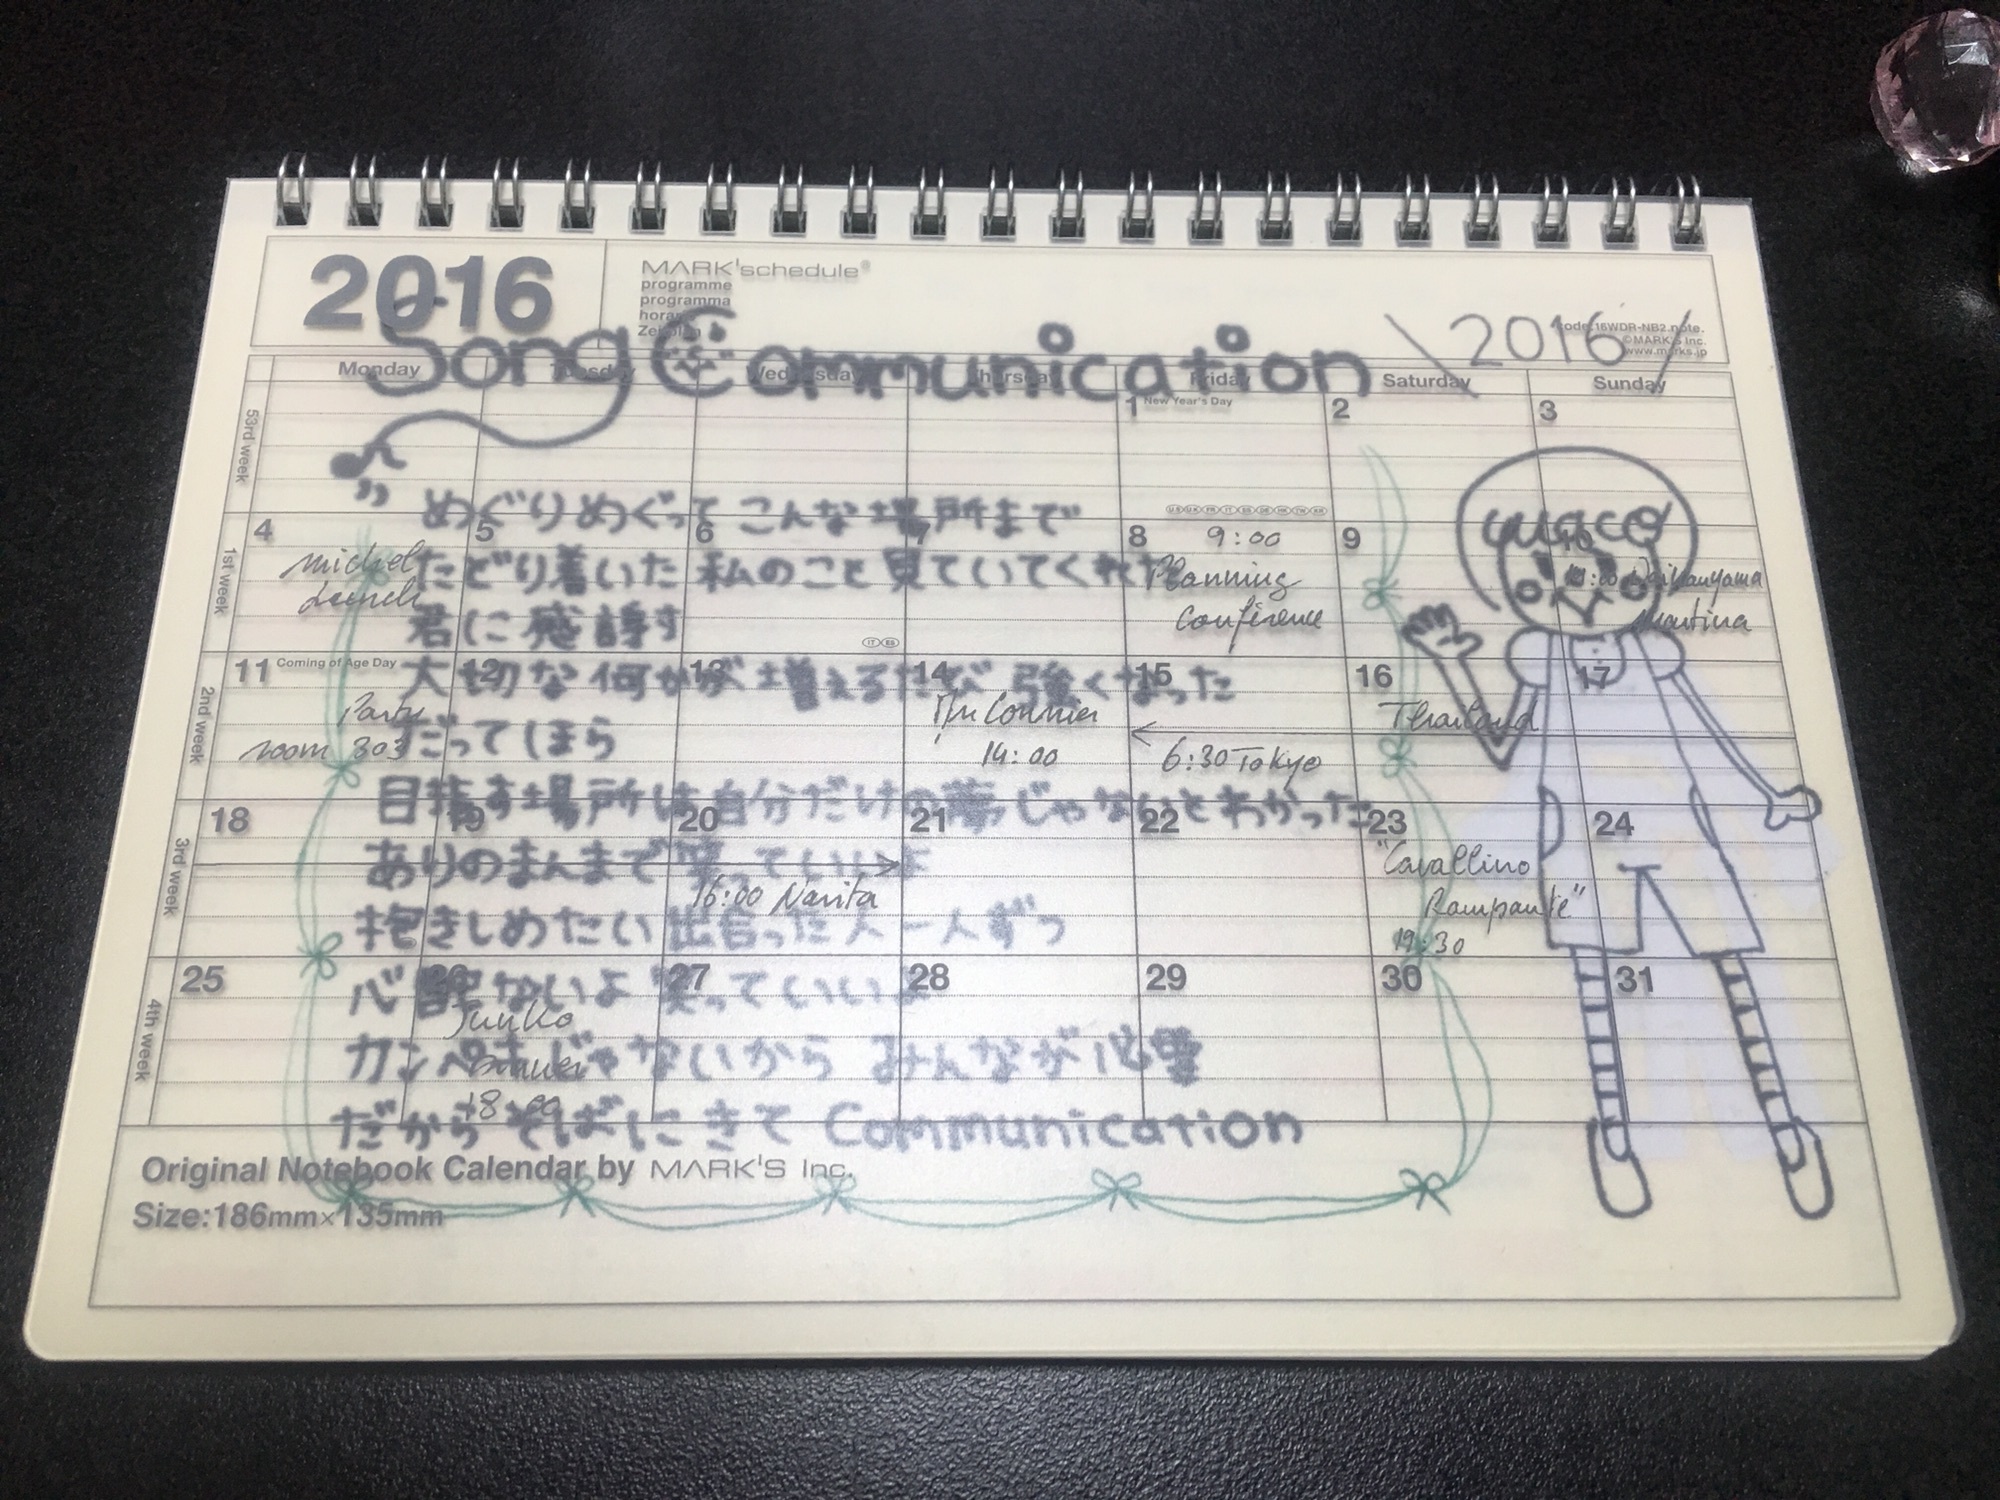 2016
MARK'schedule®
programme
programma
Song Communication \2016/
code:16WDR-NB2.note.
©MARK'S Inc.
www.marks.jp
Monday Tuesday Wednesday Thursday Friday Saturday Sunday
53rd week
1 New Year's Day 2 3
めぐりめぐって こんな場所まで
1st week
4 5 6 7 8 9 10
9:00
michel
Lunch
たどり着いた 私のこと見ていてくれた
Planning
Conférence
Daikanyama
Martina
君に感謝す
2nd week
11 Coming of Age Day 12 13 14 15 16 17
大切な何かが増えるたび 強くなった
Party
room 303
だってほら
14:00
6:30 Tokyo
Thailand
目指す場所は自分だけの夢じゃないとわかった
3rd week
18 19 20 21 22 23 24
ありのまんまで笑っていいよ
16:00 Narita
"Cavallino
Rampante"
19:30
抱きしめたい 出合った人一人ずつ
4th week
25 26 27 28 29 30 31
心配ないよ 笑っていいよ
Junko
カンペキじゃないから みんなが必要
だからそばにきて Communication
Original Notebook Calendar by MARK'S Inc.
Size:186mm×135mm